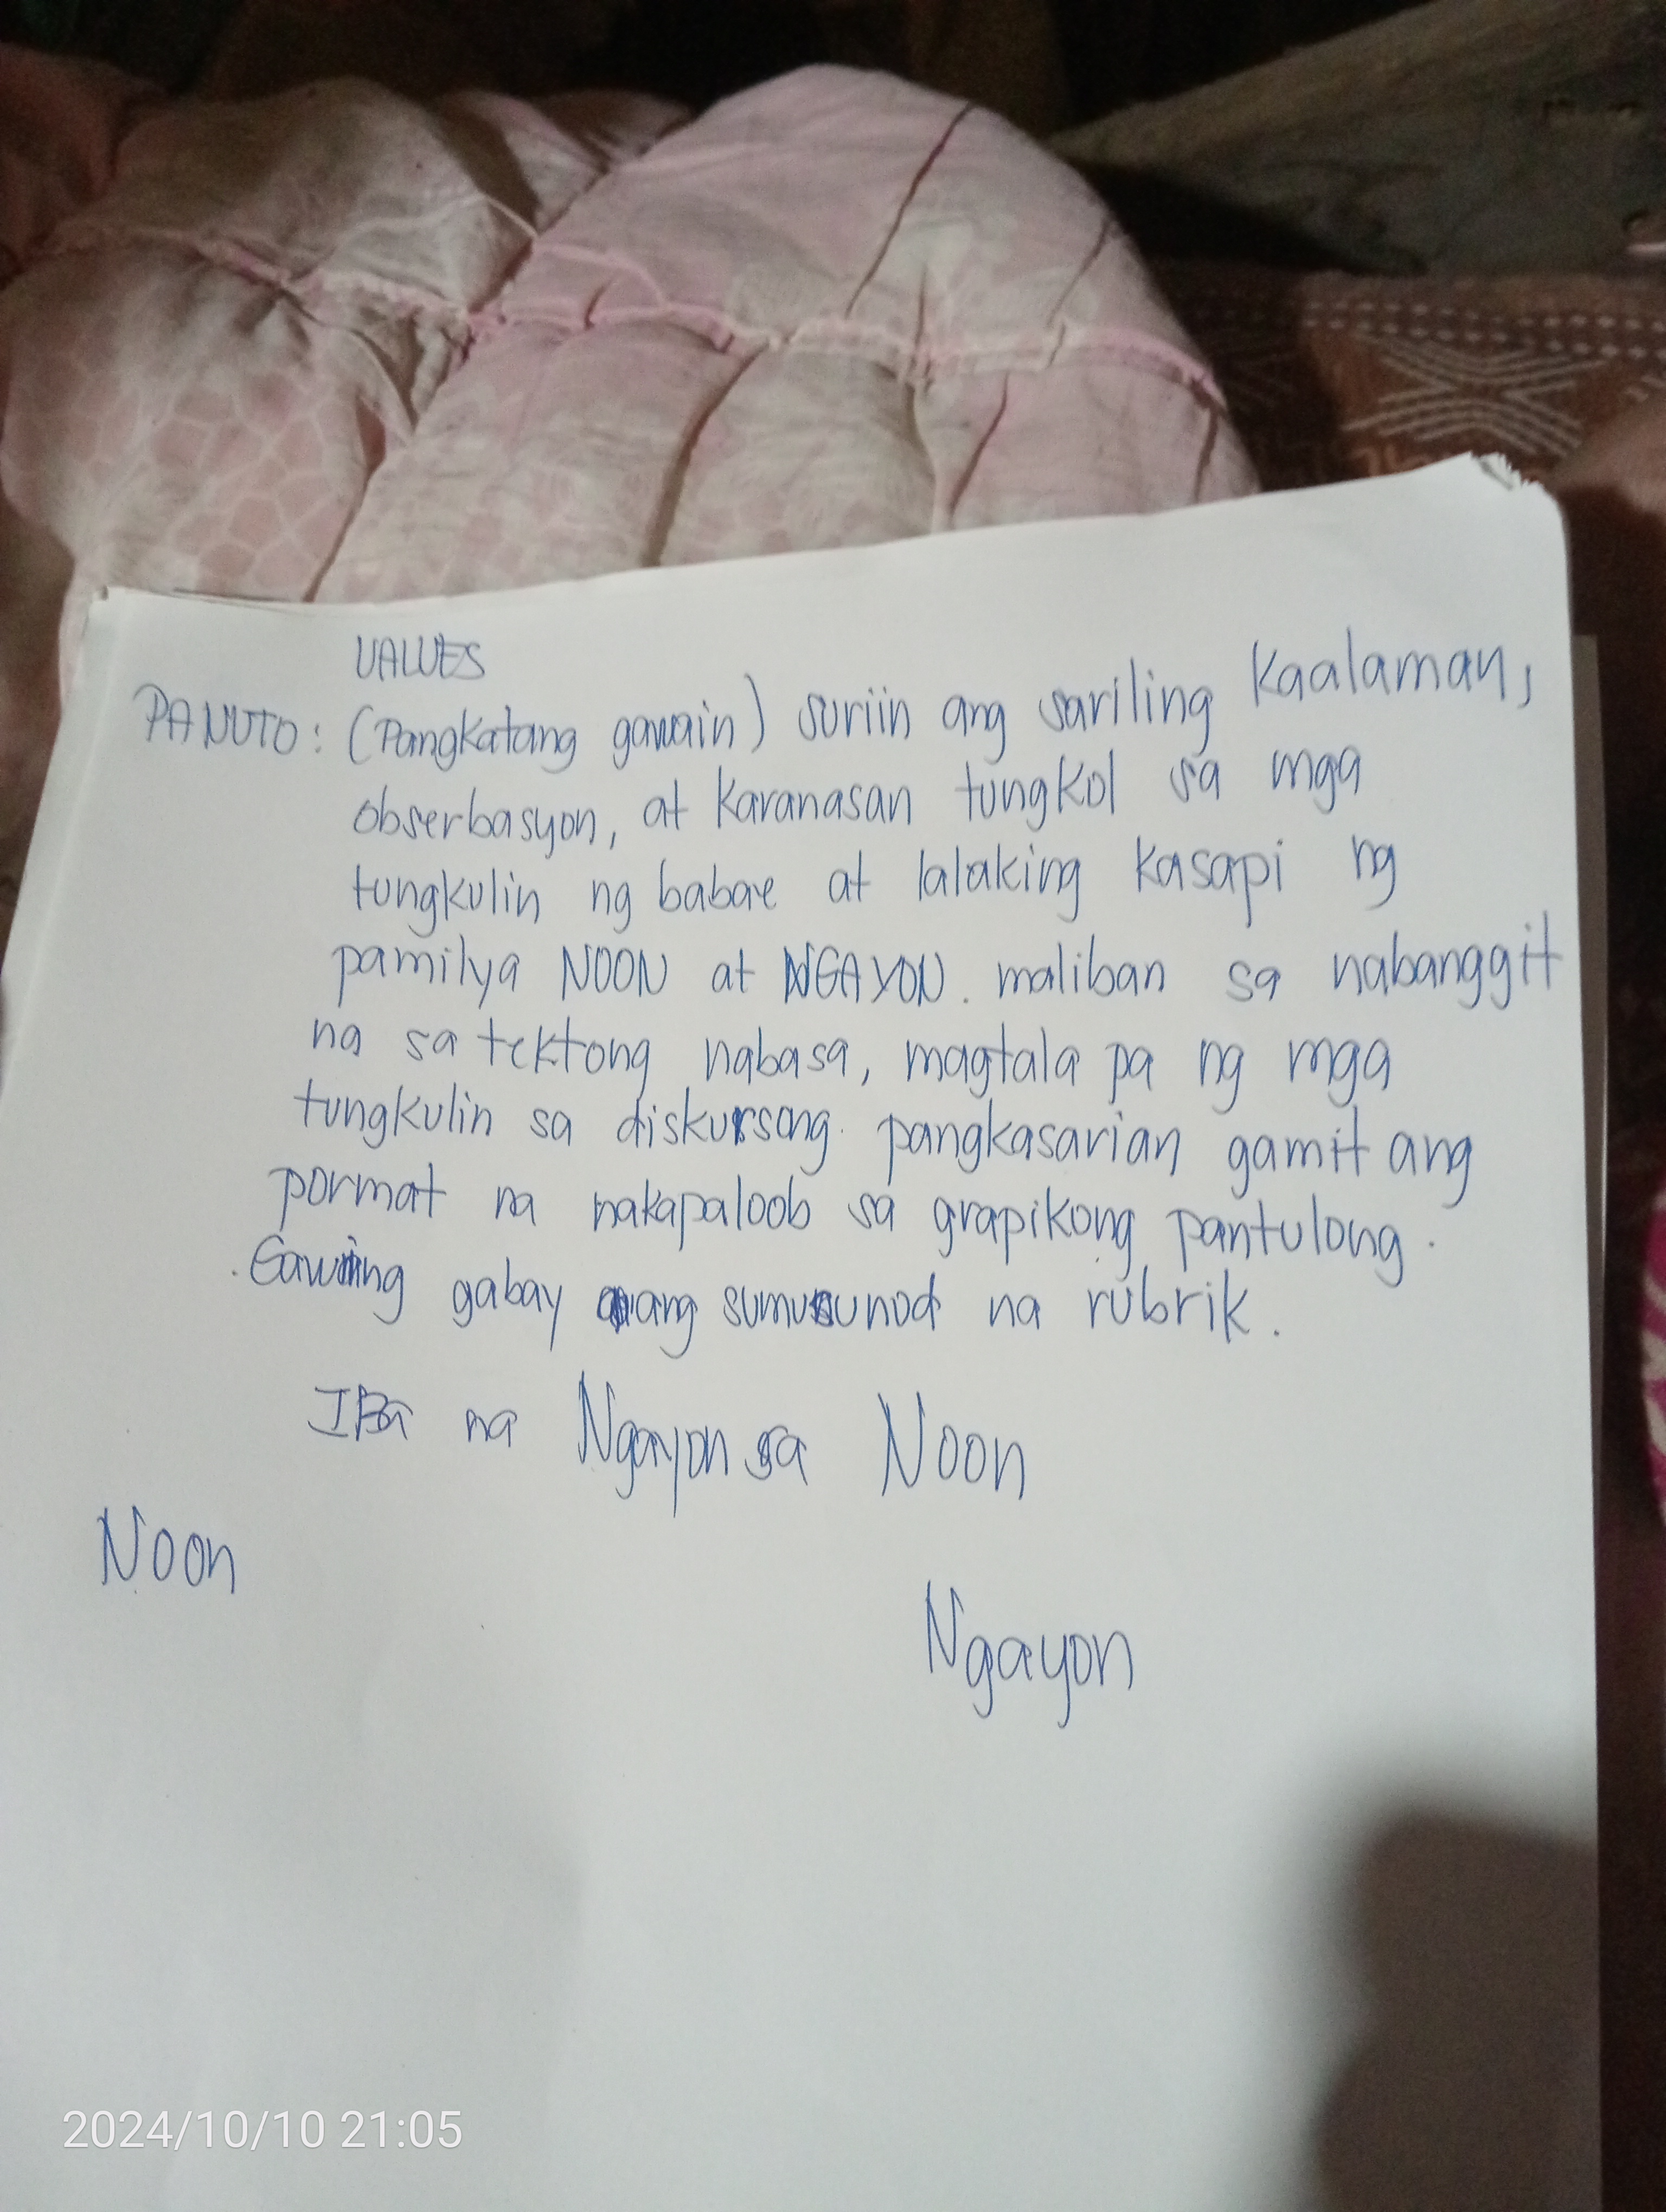 VALUES
PANUTO: (Pangkatang gawain) suriin ang sariling kaalaman,
obserbasyon, at karanasan tungkol sa mga
tungkulin ng babae at lalaking kasapi ng
pamilya NOON at NGAYON. maliban sa nabanggit
na sa tektong nabasa, magtala pa ng mga
tungkulin sa diskursong pangkasarian gamit ang
pormat na nakapaloob sa grapikong pantulong.
Gawing gabay ang sumusunod na rubrik.
IBa na Ngayon sa Noon
Noon
Ngayon
2024/10/10 21:05